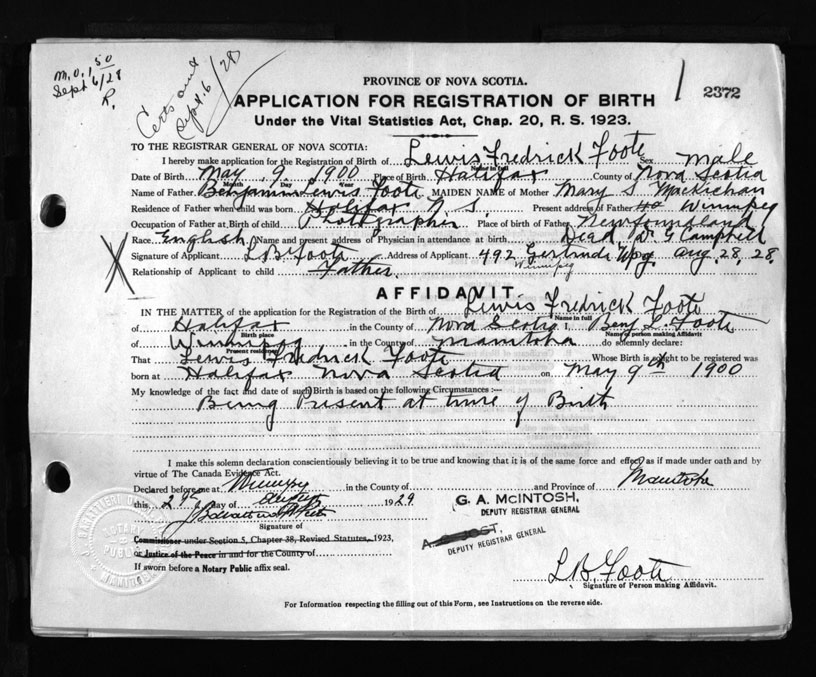 M.O. 1.50
Sept 6/28
R.
Certs sent
Sept. 6/28
1
2372
PROVINCE OF NOVA SCOTIA.
APPLICATION FOR REGISTRATION OF BIRTH
Under the Vital Statistics Act, Chap. 20, R. S. 1923.
TO THE REGISTRAR GENERAL OF NOVA SCOTIA:
I hereby make application for the Registration of Birth of Lewis Fredrick Foote Sex male
Name in full
Date of Birth May 9 1900 Place of Birth Halifax County of Nova Scotia
Month Day Year
Name of Father Benjamin Lewis Foote MAIDEN NAME of Mother Mary S. Mackichan
Residence of Father when child was born Halifax N.S. Present address of Father Winnipeg
Occupation of Father at Birth of child Photographer Place of birth of Father Newfoundland
Race English Name and present address of Physician in attendance at birth Dead Dr G Campbell
Signature of Applicant L B Foote Address of Applicant 492 Gertrude Wpg Aug 28, 28.
Winnipeg
Relationship of Applicant to child Father.
AFFIDAVIT.
IN THE MATTER of the application for the Registration of the Birth of Lewis Fredrick Foote
Name in full
of Halifax in the County of Nova Scotia I, Benj. L. Foote
Birth place Name of person making Affidavit
of Winnipeg in the County of Manitoba do solemnly declare:
Present residence
That Lewis Fredrick Foote Whose Birth is sought to be registered was
born at Halifax Nova Scotia on May 9th 1900
My knowledge of the fact and date of such Birth is based on the following Circumstances :-
Being Present at time of Birth
I make this solemn declaration conscientiously believing it to be true and knowing that it is of the same force and effect as if made under oath and by
virtue of The Canada Evidence Act.
Declared before me at Winnipeg in the County of and Province of Manitoba
this 29 day of August 1929
Signature of
G. A. McINTOSH,
DEPUTY REGISTRAR GENERAL
DEPUTY REGISTRAR GENERAL
Commissioner under Section 5, Chapter 38, Revised Statutes, 1923,
or Justice of the Peace in and for the County of
If sworn before a Notary Public affix seal.
NOTARY
PUBLIC
MANITOBA
L.B. Foote
Signature of Person making Affidavit.
For Information respecting the filling out of this Form, see Instructions on the reverse side.